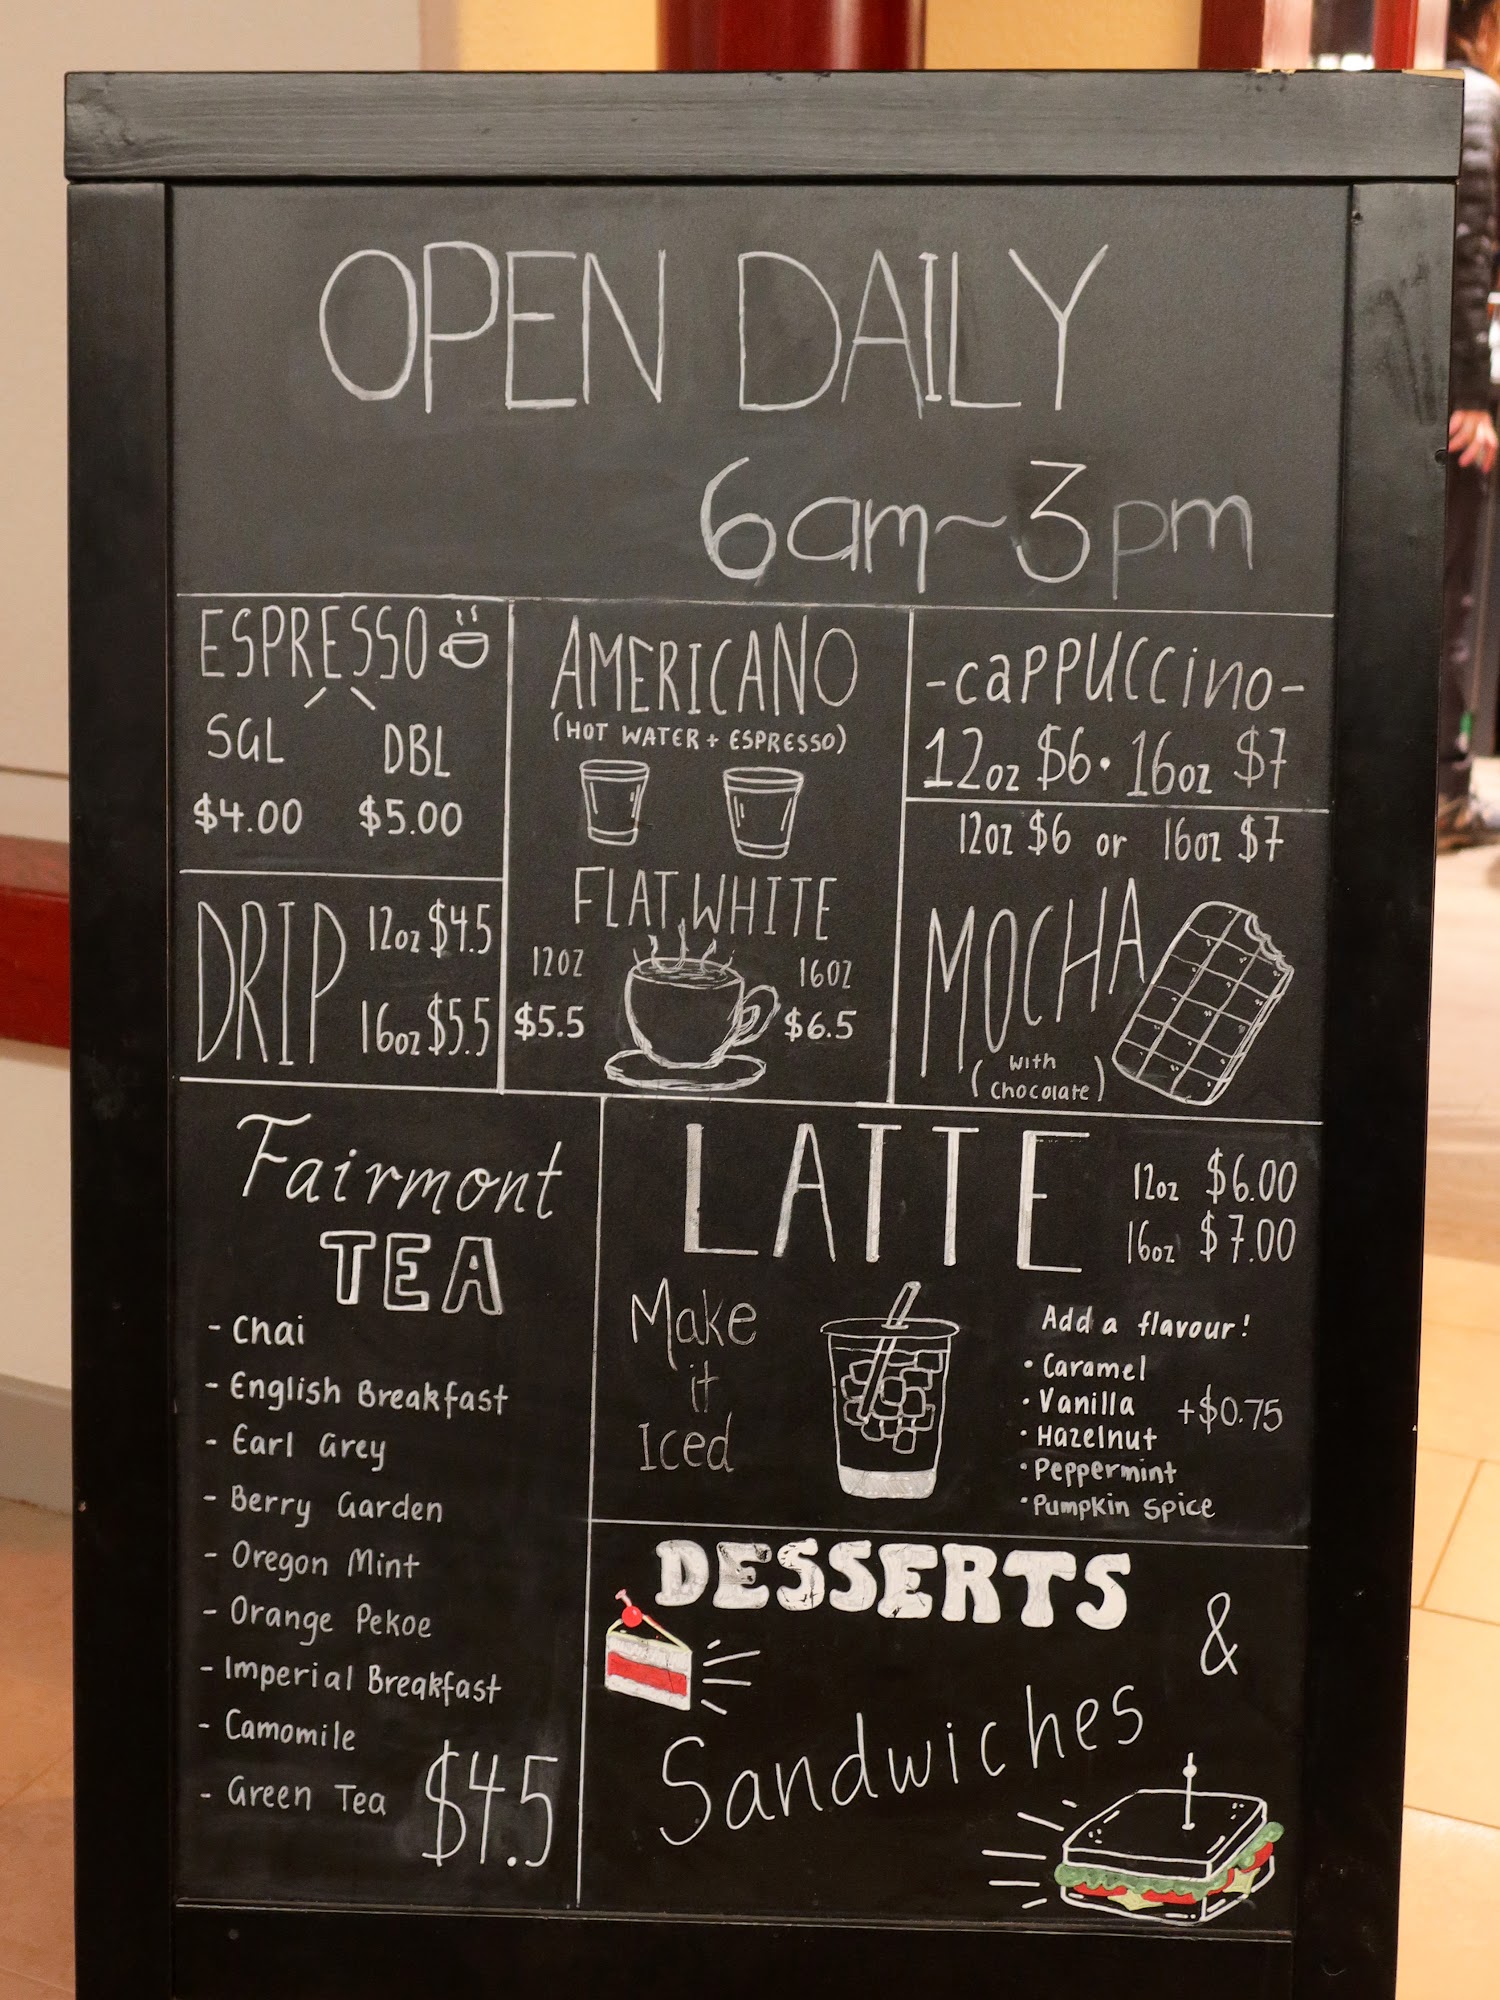 OPEN DAILY
6am~3pm
ESPRESSO
SGL DBL
$4.00 $5.00
DRIP
12oz $4.5
16oz $5.5
AMERICANO
(HOT WATER + ESPRESSO)
FLAT WHITE
12OZ 16OZ
$5.5 $6.5
-CAPPUCCiNO-
12oz $6 · 16oz $7
12oz $6 or 16oz $7
MOCHA
(with
Chocolate)
Fairmont
TEA
- Chai
- English Breakfast
- Earl Grey
- Berry Garden
- Oregon Mint
- Orange Pekoe
- Imperial Breakfast
- Camomile
- Green Tea
$4.5
LATTE
12oz $6.00
16oz $7.00
Make
it
Iced
Add a flavour!
· Caramel
· Vanilla +$0.75
· Hazelnut
· Peppermint
· Pumpkin Spice
DESSERTS
&
Sandwiches